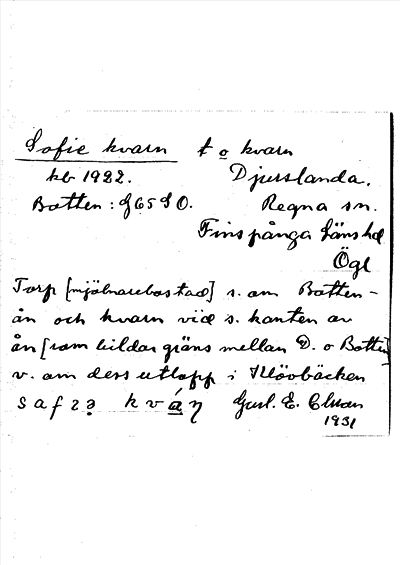 Sofie kvarn t o kvarn
kb 1922. Djurslanda.
Botten: g65S0. Regna sn.
Finspånga länshd
Ögl
Torp [mjölnarebostad] s. om Botten-
ån och kvarn vid s. kanten av
ån [som bildar gräns mellan D. o Botten]
v. om dess utlopp i
safɪə
Gusl. E.
1931